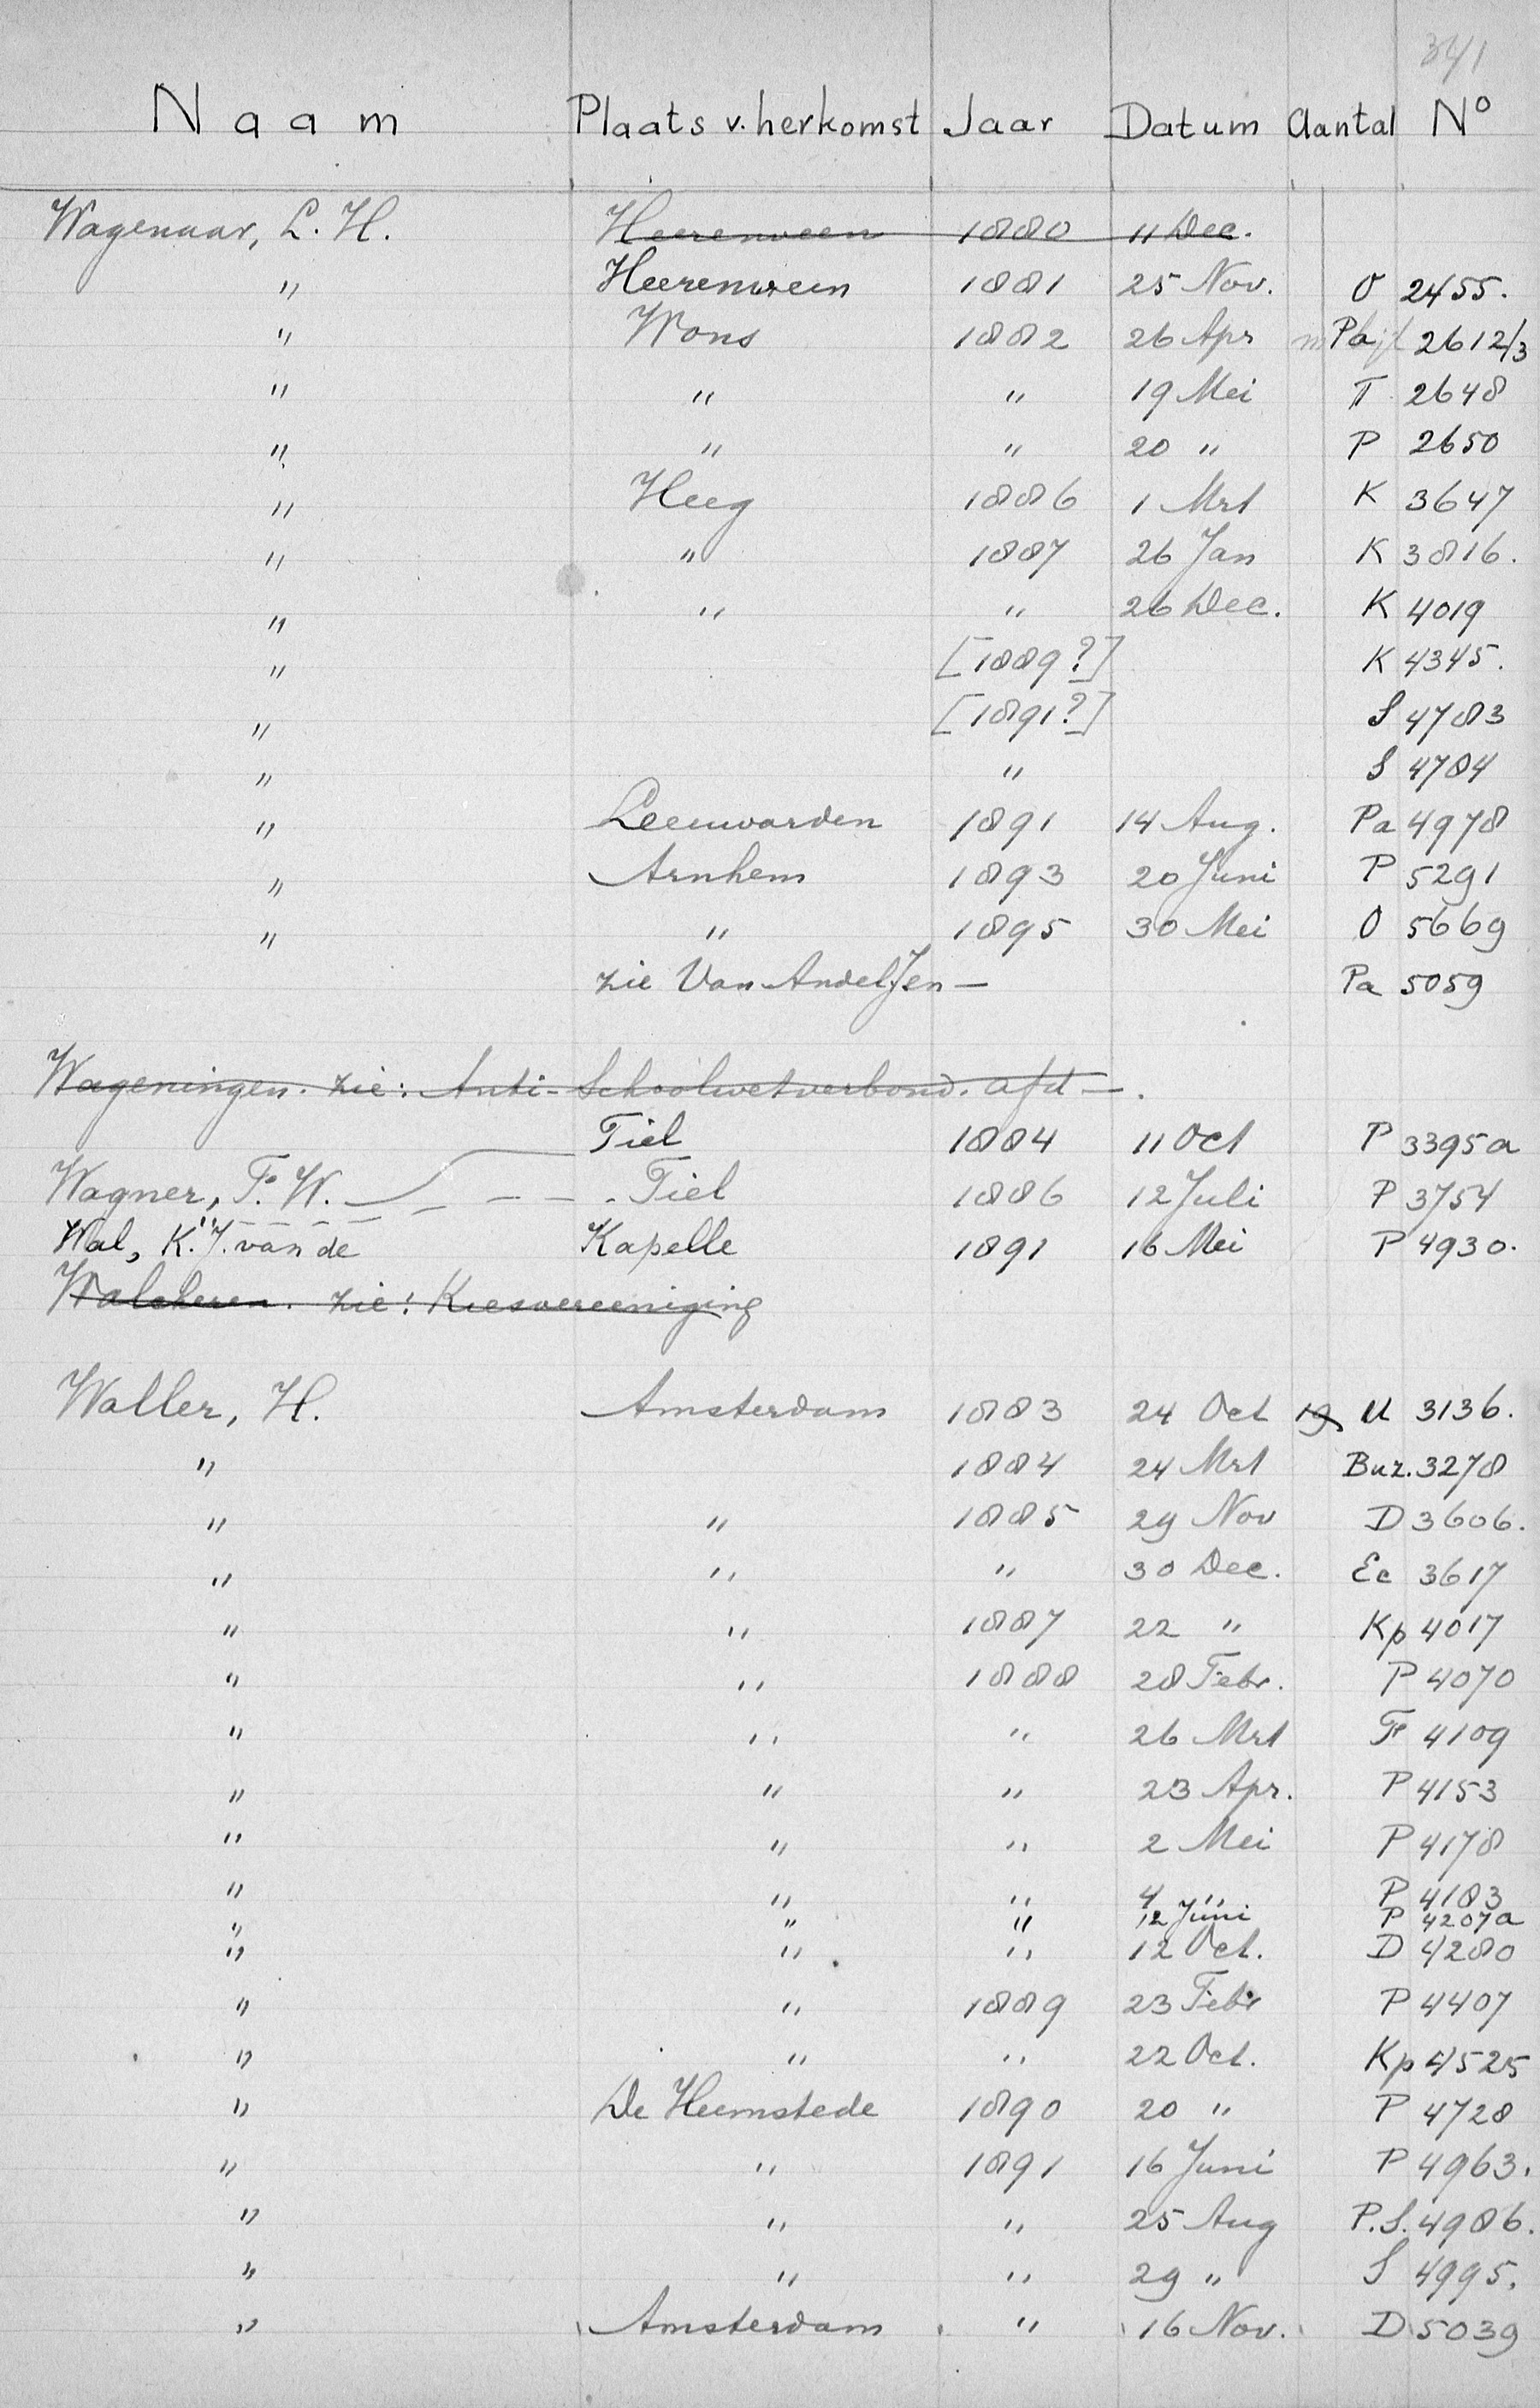 341
Naam Plaats v. herkomst Jaar Datum Aantal No
Wagenaar, L. H. Heerenveen 1880 11 Dec.
" Heerenveen 1881 25 Nov. O 2455.
" Wons 1882 26 Apr Pa 2612/3
" " " 19 Mei T 2648
" " " 20 " P 2650
" Heeg 1886 1 Mrt K 3647
" " 1887 26 Jan K 3816.
" " " 26 Dec. K 4019
" [1889?] K 4345.
" [1891?] S 4783
" " S 4784
" Leeuwarden 1891 14 Aug. Pa 4978
" Arnhem 1893 20 Juni P 5291
" " 1895 30 Mei O 5669
zie Van Andel, Jen — Pa 5059
Wageningen. zie: Anti-Schoolwetverbond. afd —.
Tiel 1884 11 Oct P 3395a
Wagner, F. W. — — - Tiel 1886 12 Juli P 3754
Wal, K. J. van de Kapelle 1891 16 Mei P 4930.
Walcheren. zie: Kiesvereeniging
Waller, H. Amsterdam 1883 24 Oct 19 U 3136.
" 1884 24 Mrt Buz. 3278
" " 1885 29 Nov D 3606.
" " " 30 Dec. Ec 3617
" " 1887 22 " Kp 4017
" " 1888 28 Febr. P 4070
" " " 26 Mrt F 4109
" " " 23 Apr. P 4153
" " " 2 Mei P 4178
" " " 4 " P 4183
" " " 12 Juni P 4207a
" " " 12 Oct. D 4280
" " 1889 23 Febr P 4407
" " " 22 Oct. Kp 4525
" De Heemstede 1890 20 " P 4728
" " 1891 16 Juni P 4963.
" " " 25 Aug P.S. 4986.
" " " 29 " S 4995.
" Amsterdam " 16 Nov. D 5039